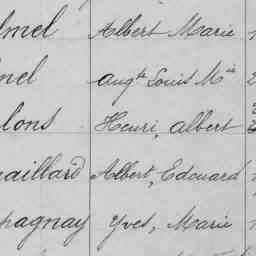 lmel Albert Marie
nel Aug.te Louis M.ie
lons Henri, Albert
aillard Albert, Edouard
pagnay Yves, Marie